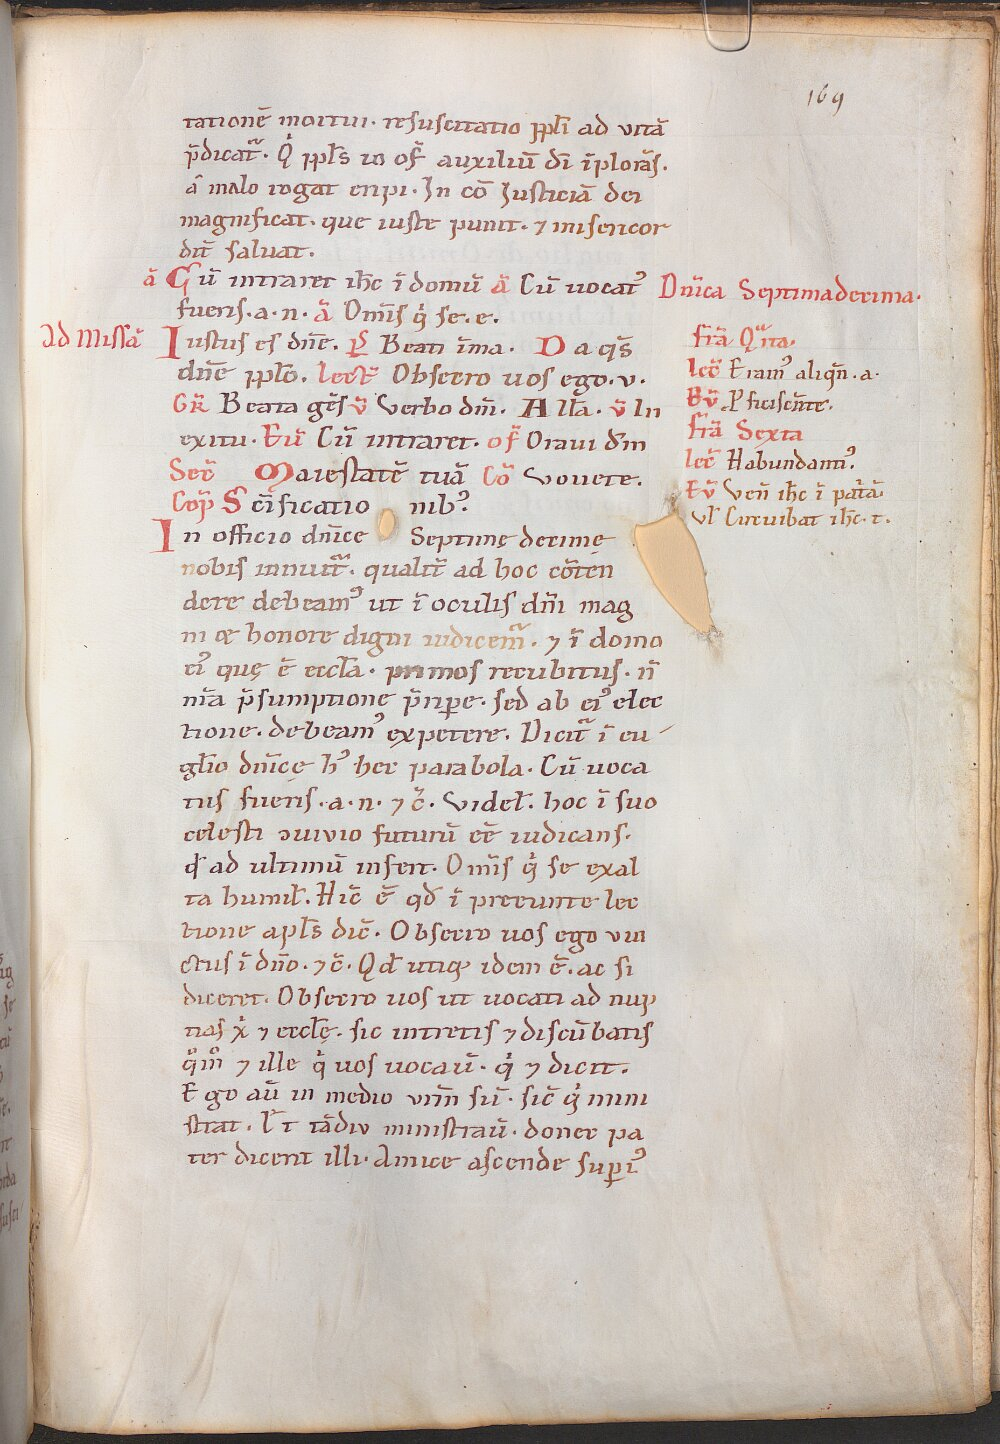 169
tationē mortui. resuscitatio ppl̄i ad vitā
p̄dicat᷑. Q̇ ppl̄s in of̄ auxiliū dī īploras̄.
a᷑ malo rogat eripi. In cō Iusticiā dei
magnificat. que iuste punit. ⁊ misericor
dit᷑ saluat.
ā Cū intraret ih̄c ī domū ā Cū uocatꝰ
fueris. a. n. ā Om̄is q̇ se. e.
Dn̄ica Septimadecima.
Ad Missā
Iustus es dn̄e. P̄s Beati īma. Da qs̄
dn̄e pplō. lect̄ Obsecro uos ego. v.
GR̄ Beata gēs v̄ Verbo dm̄. All̄a. v̄ In
exitu. Eū Cū intraret. of̄ Oraui dm̄
Sec̄ Maiestatē tuā Cō Vouete.
Cop̄ Sc̄ificatio nibꝰ.
fr̄ia Qrta.
lec̄ Etiamꝰ aliqn̄. a.
Eū Pficiscēte.
fr̄ia Sexta
lec̄ Habundamꝰ.
Eū Ven̄ ih̄c ī pat̄ā.
ul̄ Circuibat ih̄c. t.
In officio dn̄ice Septimę decimę
nobis innuit᷑. qualit᷑ ad hoc cōten
dere debeamꝰ ut ī oculis dn̄i mag
ni ⁊ honore digni iudicem᷑. ⁊ ī domo
eiꝰ quę ē eccl̄a. primos recubitus. n̄
nr̄a p̄sumptione p̄ripe. sed ab eiꝰ elec
tione. debeamꝰ expetere. Dicit᷑ ī eu
gl̄io dn̄icę hꝰ hec parabola. Cū uoca
tus fueris. a. n. ⁊ c̄. Videl̄. hoc ī suo
celesti ↄuiuio futurū eē iudicans.
qd̄ ad ultimū infert. Om̄is q̇ se exal
ta humil̄. Hic̄ ē qd̄ ī precunte lec
tione apl̄s dic̄. Obsecro uos ego vin
ctus ī dn̄o. ⁊ c̄. Qd̄ utiq idem ē. ac si
diceret. Obsecro uos ut uocati ad nup
tias x̄ ⁊ eccl̄ę. sic intretis ⁊ discūbatis
qm̄ ⁊ ille q̇ uos uocauᷓ. q̇ ⁊ dicit.
Ego aū in medio vrm̄ sū. sic̄ q̇ mini
strat. ⁊ tādiu ministrauᷓ. donec pa
ter dicent illi. Amice ascende supiꝰ